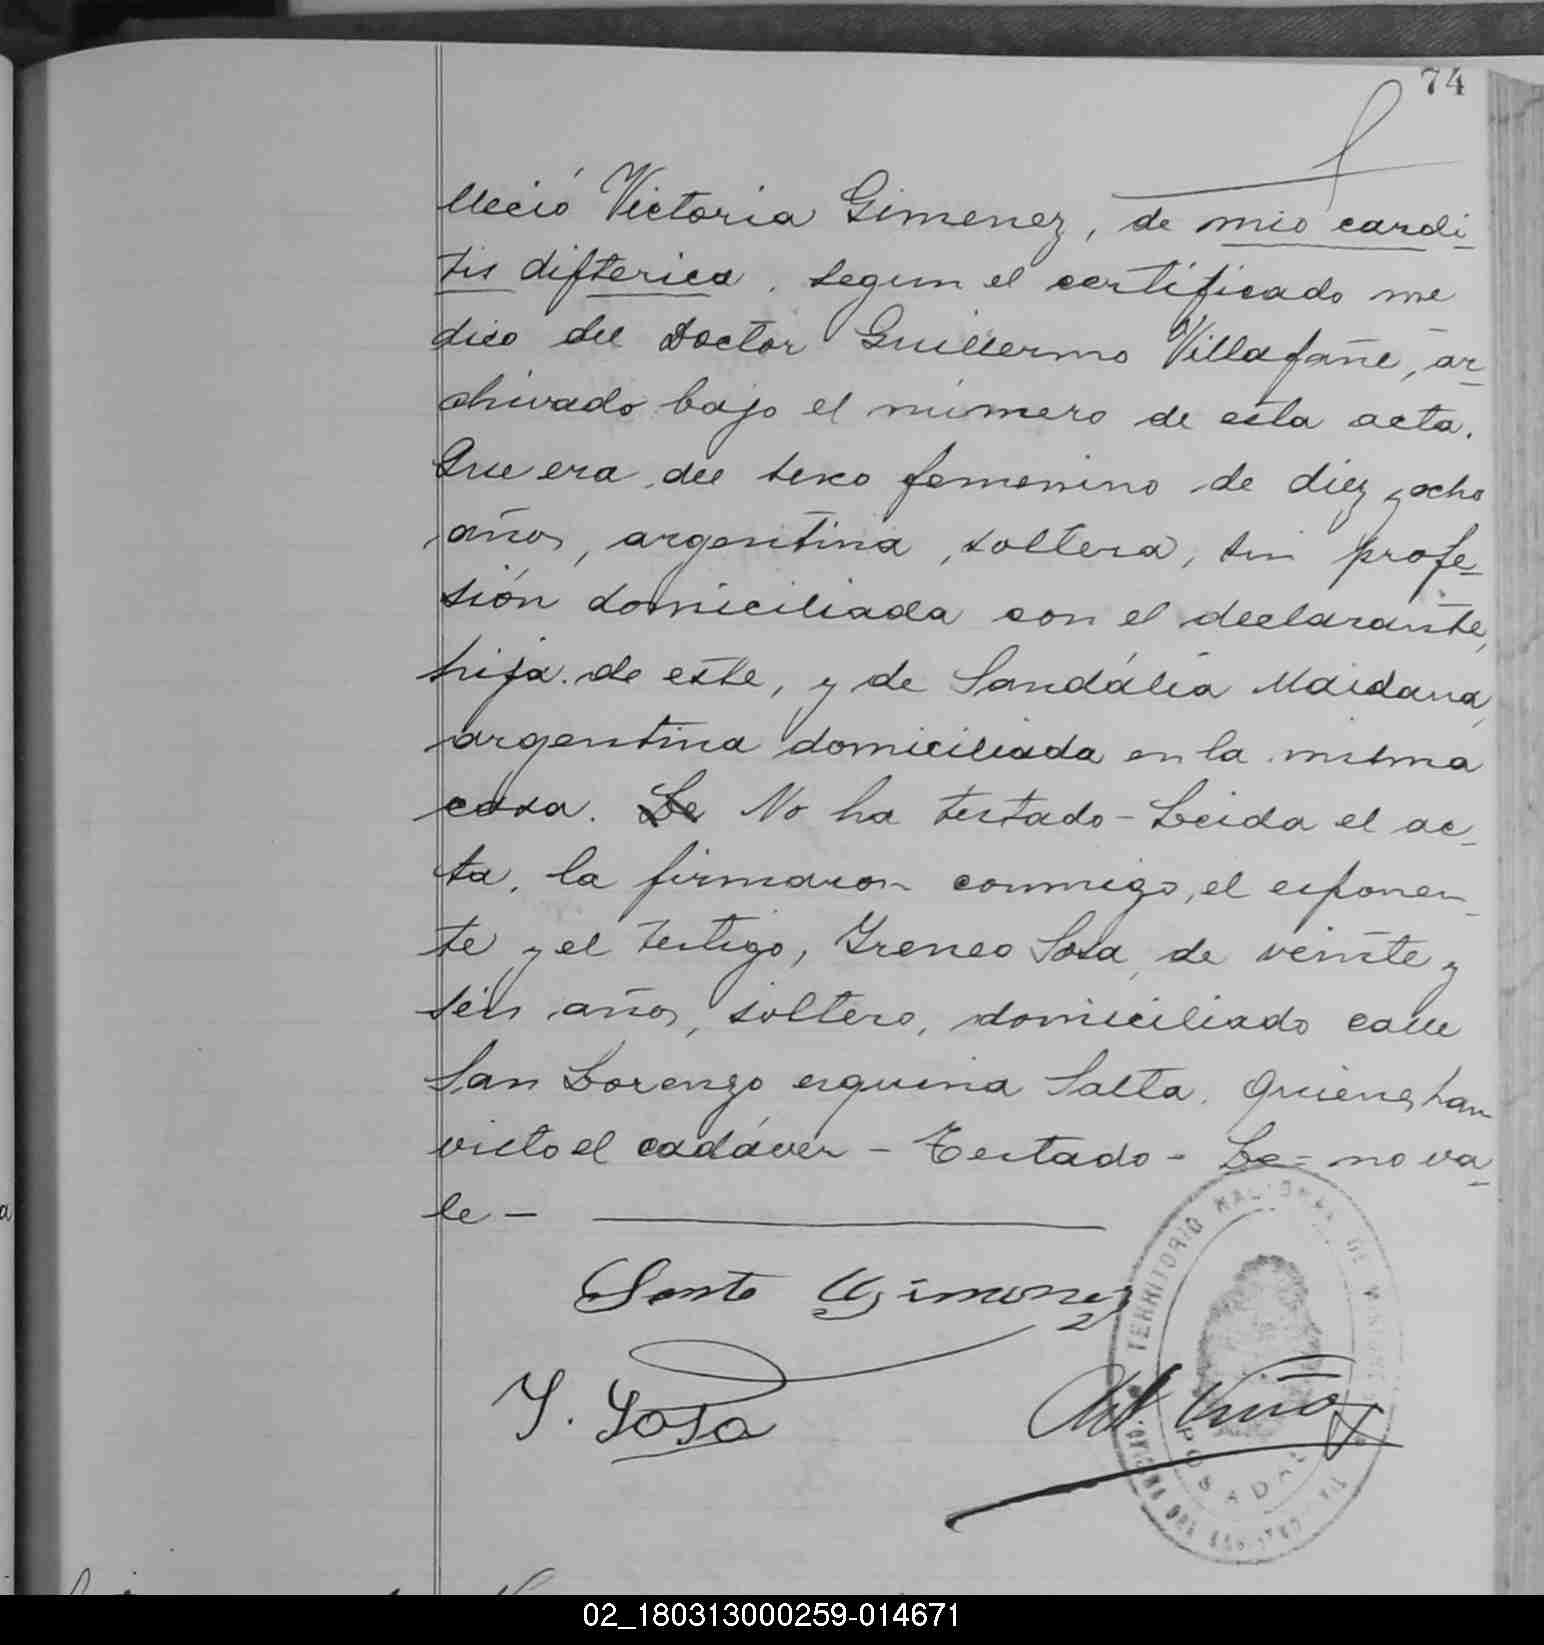 74
lleció Victoria Gimenez, de mio cardi-
tis difterica. segun el certificado me
dico del Doctor Guillermo Villafañe, ar-
chivado bajo el número de esta acta.
Que era del sexo femenino de diez y ocho
años, argentina, soltera, sin profe-
sión domiciliada con el declarante,
hija de este, y de Sandália Maidana,
argentina domiciliada en la misma
casa. Le No ha testado - Leida el ac-
ta, la firmaron conmigo, el exponen-
te y el testigo, Yreneo Sosa, de veinte y
seis años, soltero, domiciliado calle
San Lorenzo esquina Salta. Quienes han
visto el cadáver - Testado - Le = no va-
le -
Santo Gimenez
Y. Sosa
TERRITORIO NACIONAL DE MISIONES
POSADAS
OFICINA DEL REGISTRO CIVIL
02_180313000259-014671